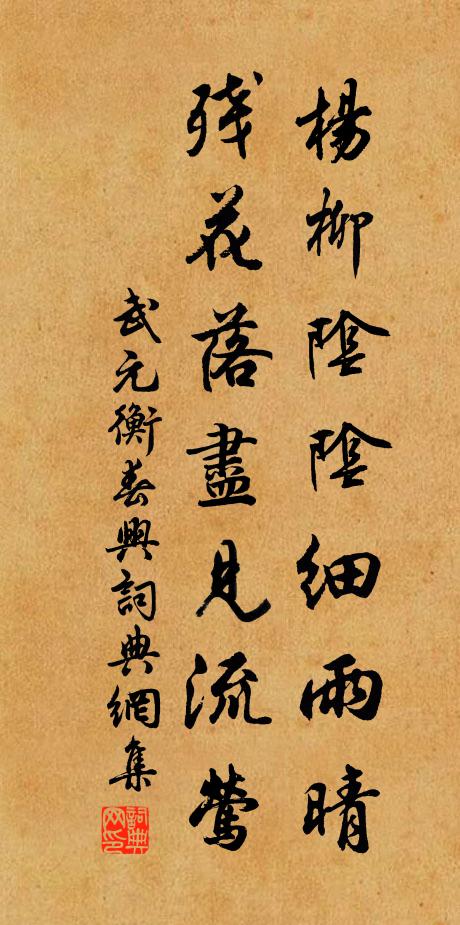 楊柳陰陰細雨晴
殘花落盡見流鶯
武元衡春興詞典網集
詞典網印